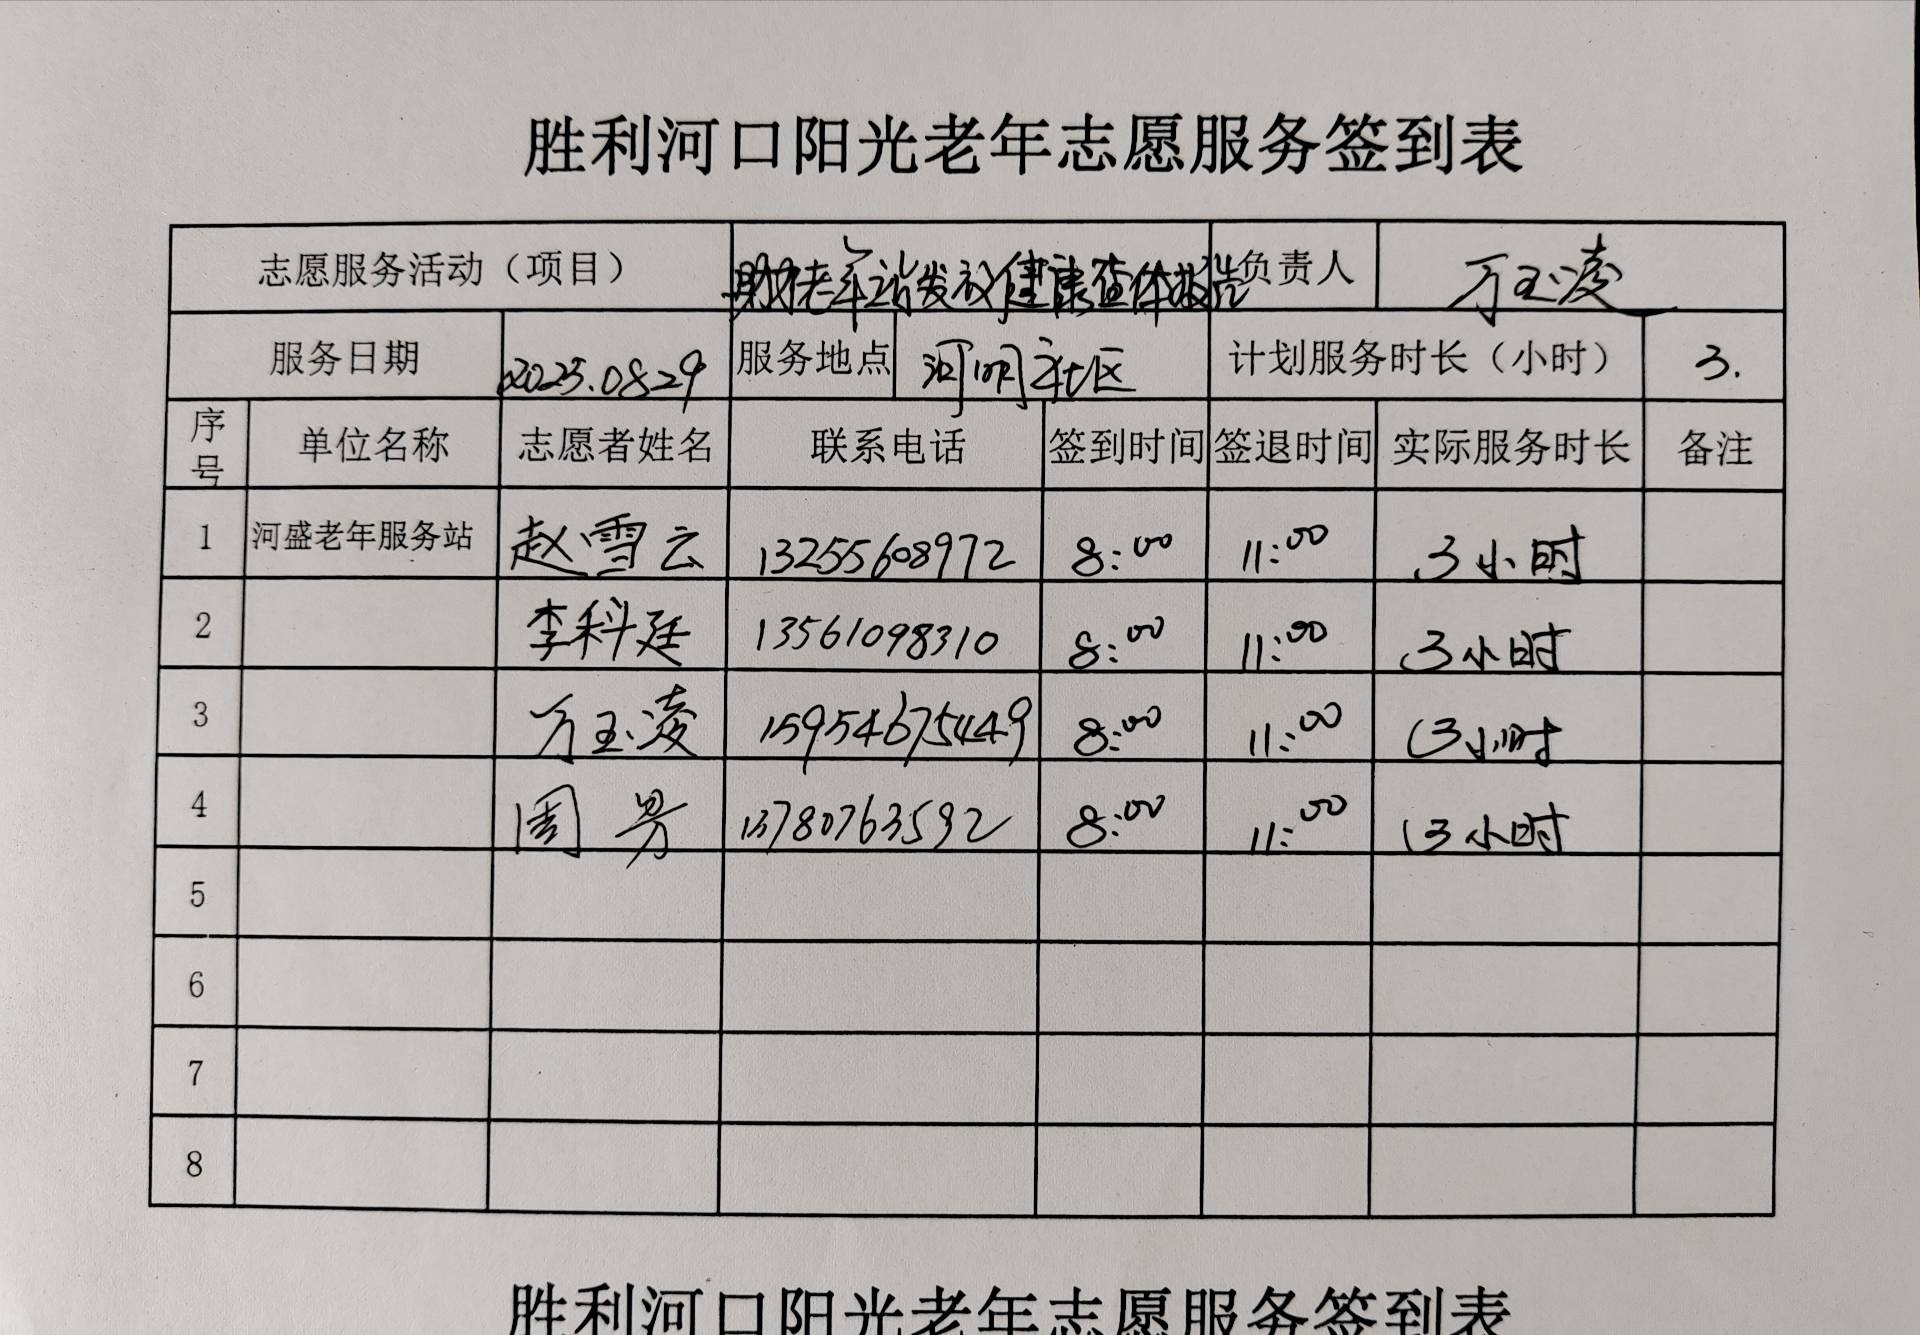 胜利河口阳光老年志愿服务签到表
志愿服务活动（项目） 助老年站发放健康查体报告 负责人 万玉凌
服务日期 2025.0829 服务地点 河明社区 计划服务时长（小时） 3.
序号 单位名称 志愿者姓名 联系电话 签到时间 签退时间 实际服务时长 备注
1 河盛老年服务站 赵雪云 13255608972 8:00 11:00 3小时
2 李科廷 13561098310 8:00 11:00 3小时
3 万玉凌 15954675449 8:00 11:00 3小时
4 周 13780763592 8:00 11:00 3小时
5
6
7
8
胜利河口阳光老年志愿服务签到表